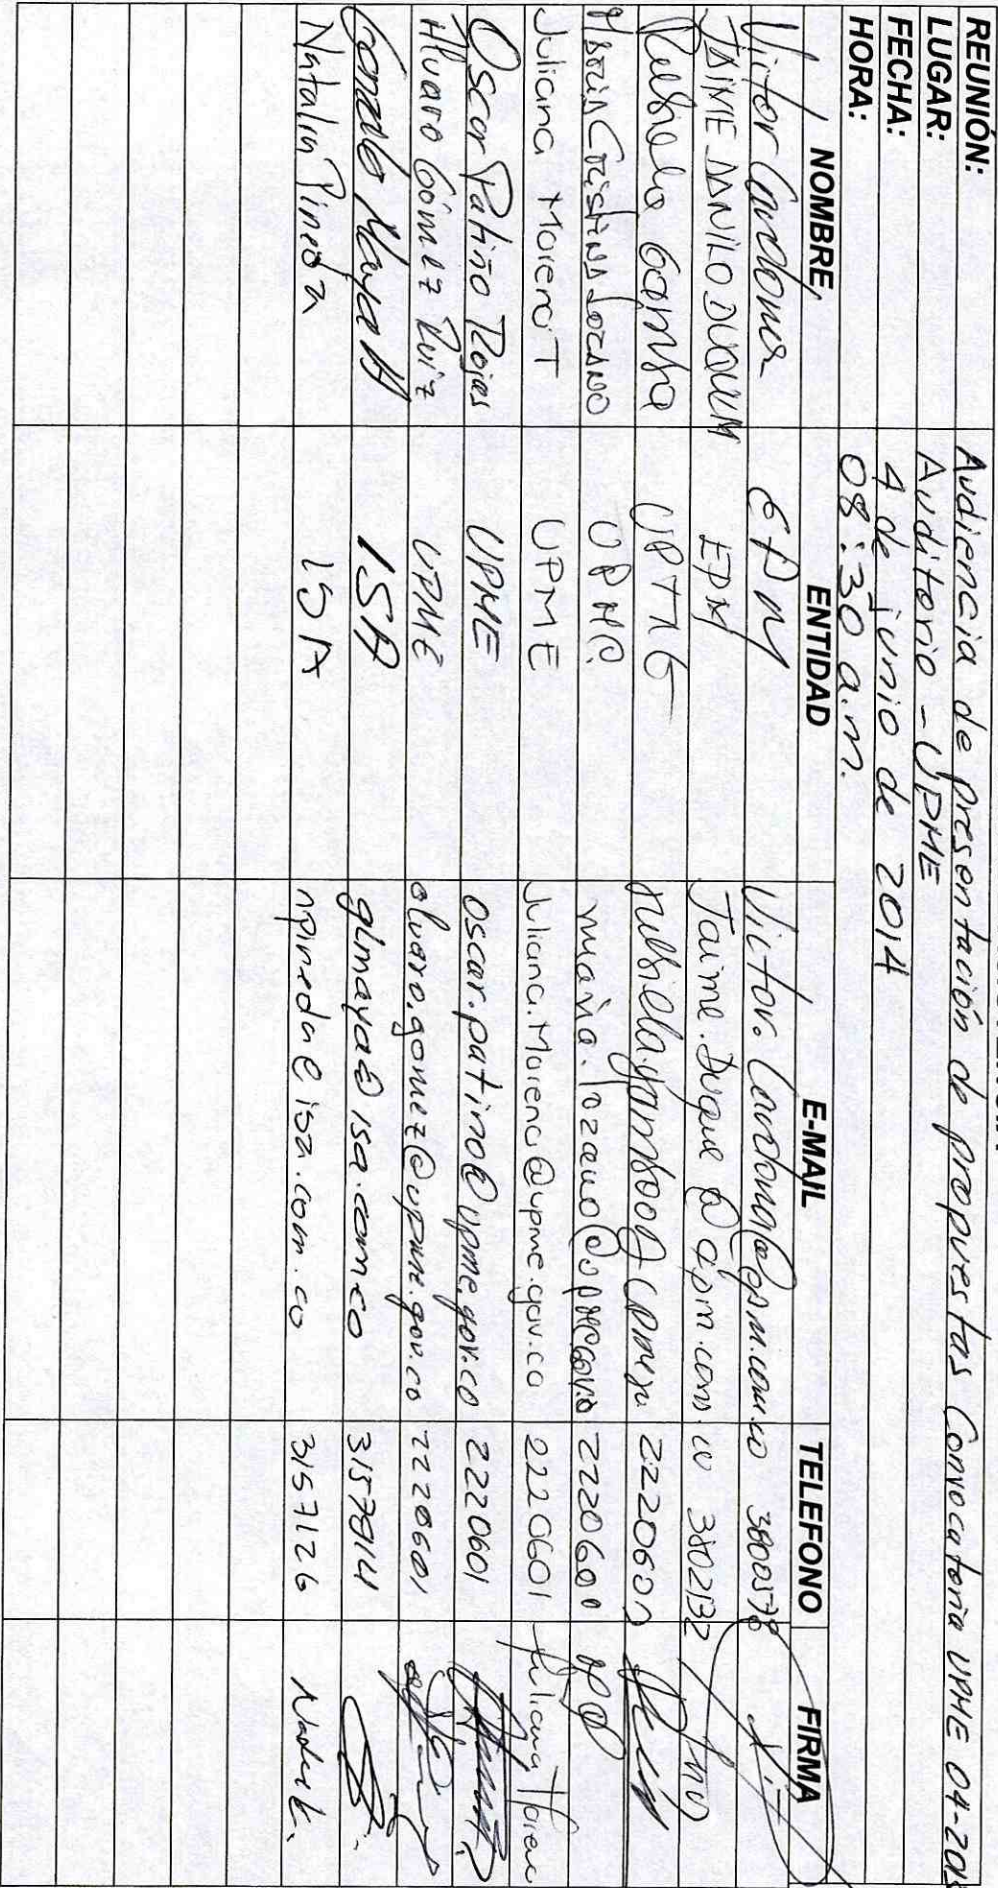 REUNIÓN: Audiencia de presentación de propuestas Convocatoria UPME 04-201
LUGAR: Auditorio - UPME
FECHA: 4 de junio de 2014
HORA: 08:30 a.m.
NOMBRE ENTIDAD E-MAIL TELEFONO FIRMA
Victor Cardona EPM 3800578
JAIME DANILO DUQUE M EPM Jaime.Duque@epm.com.co 3802132
2220601
UPME 2220601
Juliana Moreno T UPME Juliana.Moreno@upme.gov.co 2220601 Juliana Moreno
Oscar Patiño Rojas UPME oscar.patino@upme.gov.co 2220601
Alvaro Gómez Ruiz UPME alvaro.gomez@upme.gov.co 2220601
Gonzalo Maya A ISA glmaya@isa.com.co 3157914
Natalia Pineda ISA npineda@isa.com.co 3157126